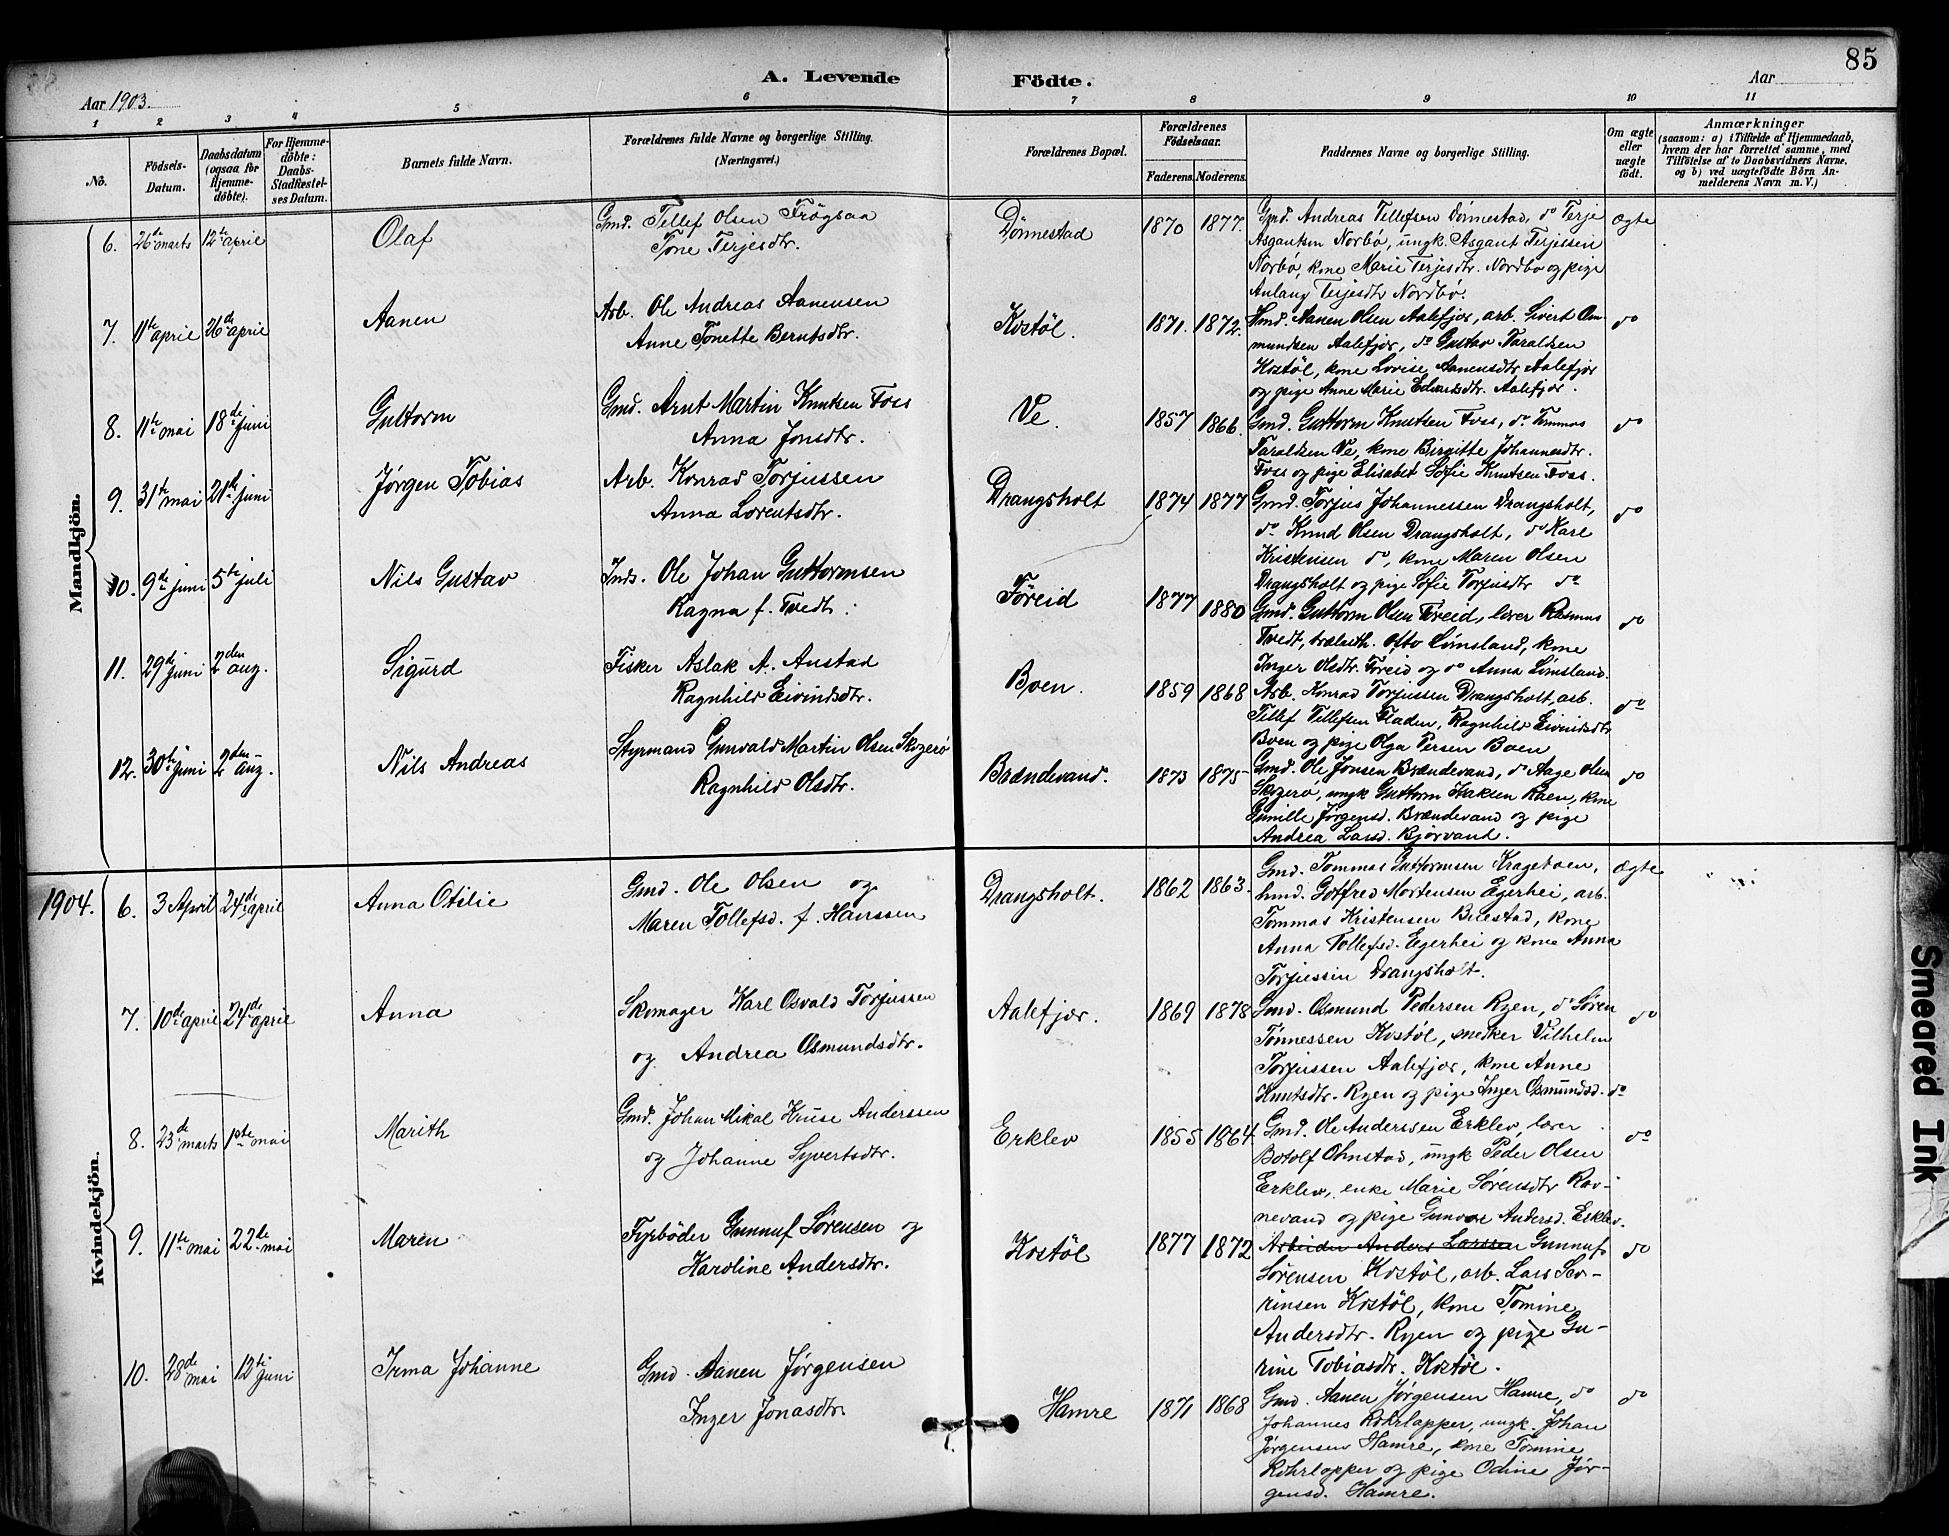 85
A. Levende Födte.
Aar 1903.
Aar
1 2 3 4 5 6 7 8 9 10 11
No.
Födsels-Datum.
Daabsdatum (ogsaa for Hjemme-döbte).
For Hjemme-döbte: Daabs-Stadfæstelses Datum.
Barnets fulde Navn.
Forældrenes fulde Navne og borgerlige Stilling. (Næringsvei.)
Forældrenes Bopæl.
Forældrenes Födselsaar.
Faderens. Moderens.
Faddernes Navne og borgerlige Stilling.
Om ægte eller uægte födt.
Anmærkninger
(saasom: a) i Tilfælde af Hjemmedaab, hvem der har forrettet samme, med Tilföielse af to Daabsvidners Navne, og b) ved uægtefödte Börn Anmelderens Navn m. V.)
Mandkjön.
6. 26de marts 12te april Olaf
Gmd. Tellef Olsen Frøgsaa
Tone Terjesdtr.
Dønnestad 1870 1877.
Gmd. Andreas Tellefsen Dønnestad, do Terje
Asgautsen Norbø, ungk. Asgaut Terjessen
Norbø, kone Marie Terjesdtr. Nordbø og pige
Anlaug Terjesdtr Nordbø.
ægte
7. 11te april 26de april Aanen
Arb. Ole Andreas Aanensen
Anne Tonette Berntsdtr.
Kostøl. 1871. 1872.
Hmd. Aanen Olsen Aalefjær, arb. Sivert Om-
mundsen Aalefjær, do Gustav Taraldsen
Kostøl, kone Lovise Aanensdtr Aalefjær
og pige Anne Marie Edvartsdtr. Aalefjær.
do
8. 11te mai 18de juni Guttorm
Gmd. Arnt Martin Knutsen Foss
Anna Jonsdtr.
Ve. 1857 1866.
Gmd. Guttorm Knutsen Foss, do Tommas
Taraldsen Ve, kone Birgitte Johannesdtr.
Foss og pige Elisabet Sofie Knutsen Foss.
do
9. 31te mai 21de juni Jørgen Tobias
Arb. Konrad Torjussen
Anna Lorentsdtr.
Drangsholt 1874 1877
Gmd. Torjus Johannessen Drangsholt,
do Knud Olsen Drangsholt, do Karl
Kristensen do, kone Maren Olsen
Drangsholt og pige Sofie Torjusdtr do
do
10. 9de juni 5te juli Nils Gustav
Inds. Ole Johan Guttormsen
Ragna f. Tvedt.
Føreid 1877 1880
Gmd. Guttorm Olsen Føreid, lærer Rasmus
Tvedt, trælasth. Otto Lømsland, kone
Inger Olsdtr. Føreid og do Anna Lømsland.
do
11. 29de juni 2den aug. Sigurd
Fisker Aslak A. Austad
Ragnhild Eivindsdtr.
Boen. 1859 1868
Arb. Konrad Torjussen Drangsholt, arb.
Tellef Tellefsen Fladen, Ragnhild Eivindsdtr
Boen og pige Olga Persen Boen
do
12. 30te juni 2den aug. Nils Andreas
Styrmand Gunvald Martin Olsen Skogerø
Ragnhild Olsdtr.
Brændevand. 1873 1875
Gmd. Ole Jonsen Brændevand, do Aage Olsen
Skogerø, ungk Guttorm Isaksen Raen, kone
Gunille Jørgensd. Brændevand og pige
Andrea Larsd. Bjørvand.
do
Kvindekjön.
1904. 6. 3 April 24de april Anna Otilie
Gmd. Ole Olsen og
Maren Tollefsd. f. Hanssen
Drangsholt. 1862 1863.
Gmd. Tommas Guttormsen Krageboen,
hmd. Gotfred Mortensen Egerhei, arb.
Tommas Kristensen Buestad, kone
Anna Tollefsd. Egerhei og kone Anna
Torjussen Drangsholt.
ægte
7. 10de april 24de april Anna
Skomager Karl Osvald Torjussen
og Andrea Osmundsdtr.
Aalefjær. 1869 1878
Gmd. Osmund Pedersen Ryen, do Søren
Tønnessen Kostøl, snekker Vilhelm
Torjussen Aalefjær, kone Anne
Knutsdtr. Ryen og pige Inger Osmundsd. do
do
8. 23de marts 1ste mai Marith
Gmd. Johan Mikal Kruse Anderssen
og Johanne Syvertsdtr.
Erklev 1855 1864.
Gmd. Ole Anderssen Erklev, lærer
Botolf Omstad, ungk Peder Olsen
Erklev, enke Marie Sørensdtr Rav-
nevand og pige Gunvor Andersd. Erklev.
do
9. 11te mai 22de mai Maren
Fyrbøder Gunnuf Sørensen og
Karoline Andersdtr.
Kostøl 1877 1872
Arbeider Anders Larssen Gunnuf
Sørensen Kostøl, arb. Lars Sev-
rinsen Kostøl, kone Tomine
Andersdtr. Ryen og pige Gu-
rine Tobiasdtr. Kostøl.
do
10. 28de mai 12te juni Irma Johanne
Gmd. Aanen Jørgensen
Inger Jonasdtr.
Hamre 1871 1868
Gmd. Aanen Jørgensen Hamre, do
Johannes Rohrlapper, ungk. Johan
Jørgensen Hamre, kone Tomine
Rohrlapper og pige Odine Jør-
gensd. Hamre.
do
Smeared Ink